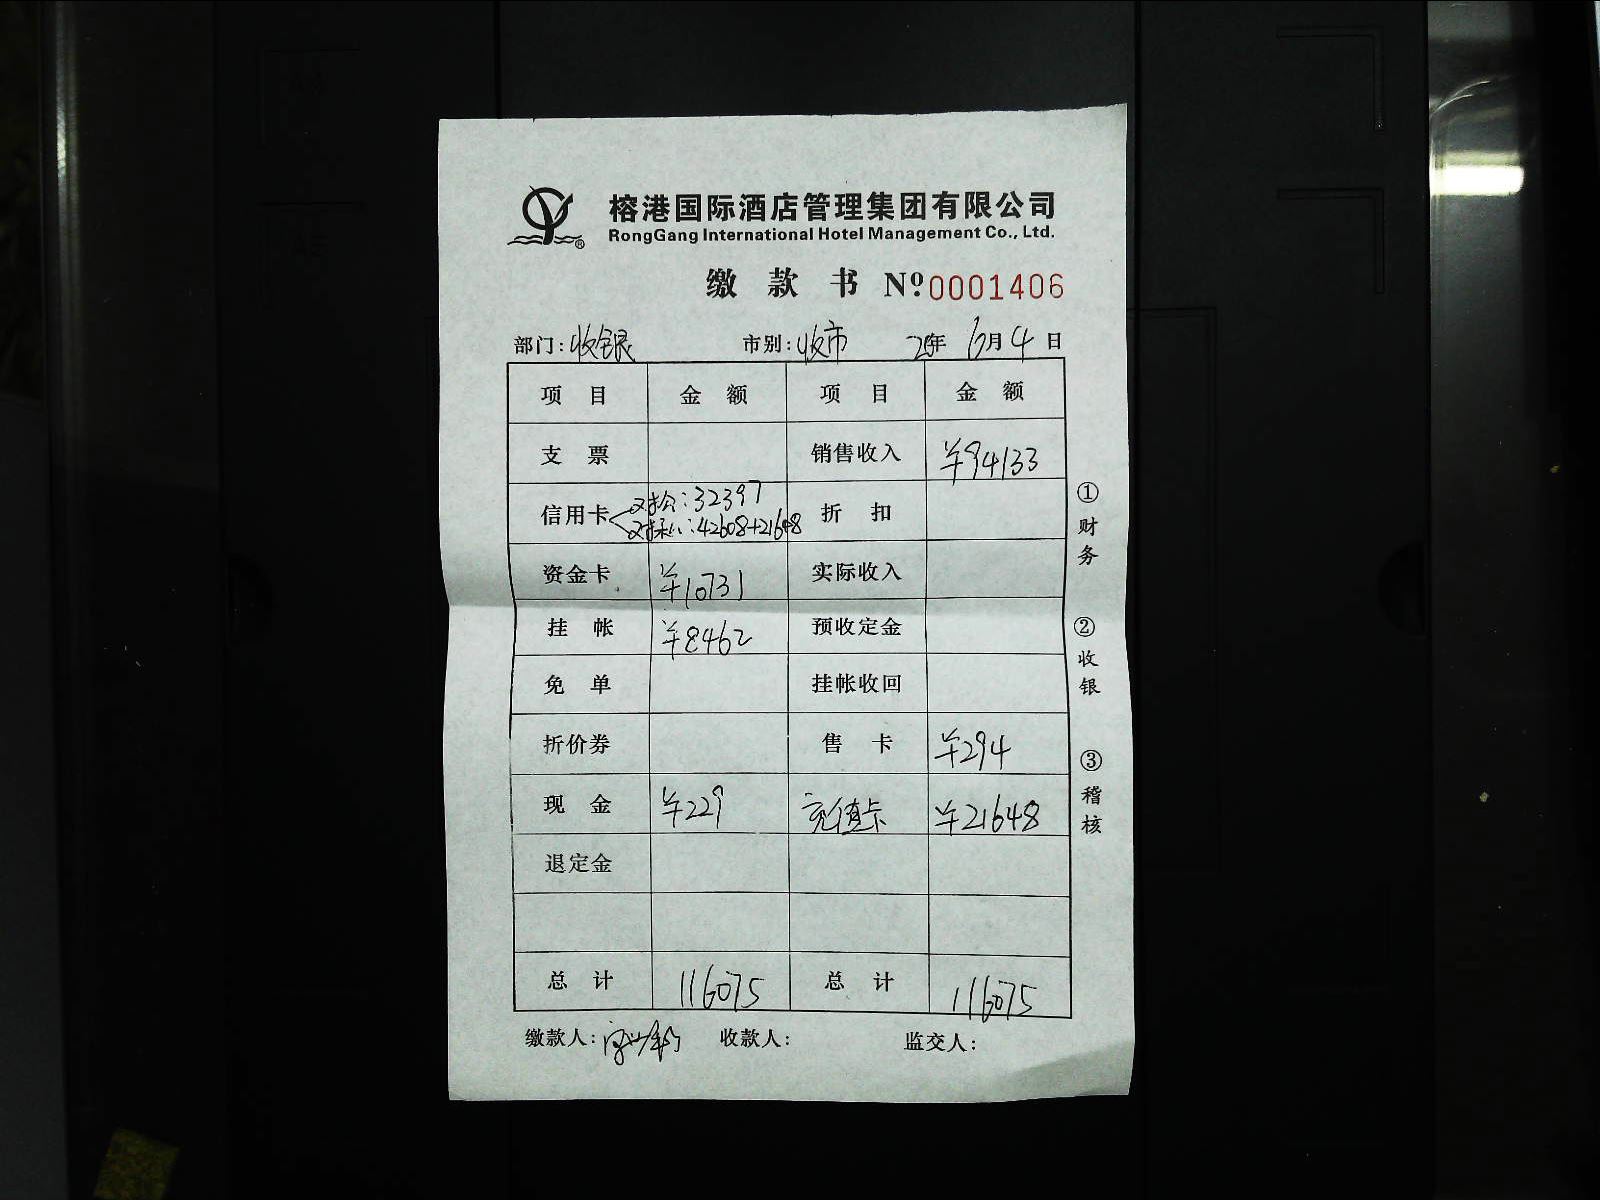 榕港国际酒店管理集团有限公司
RongGang International Hotel Management Co., Ltd.
缴款书 Nº 0001406
部门: 收银 市别: 收市 年 6月4日
项目 金额 项目 金额
支票 销售收入 ¥94133
信用卡 对公: 32397 折扣
42608+21648
资金卡 ¥10731 实际收入
挂帐 ¥8462 预收定金
免单 挂帐收回
折价券 售卡 ¥294
现金 ¥229 充值卡 ¥21648
退定金
总计 116075 总计 116075
缴款人: 收款人: 监交人:
①财务
②收银
③稽核